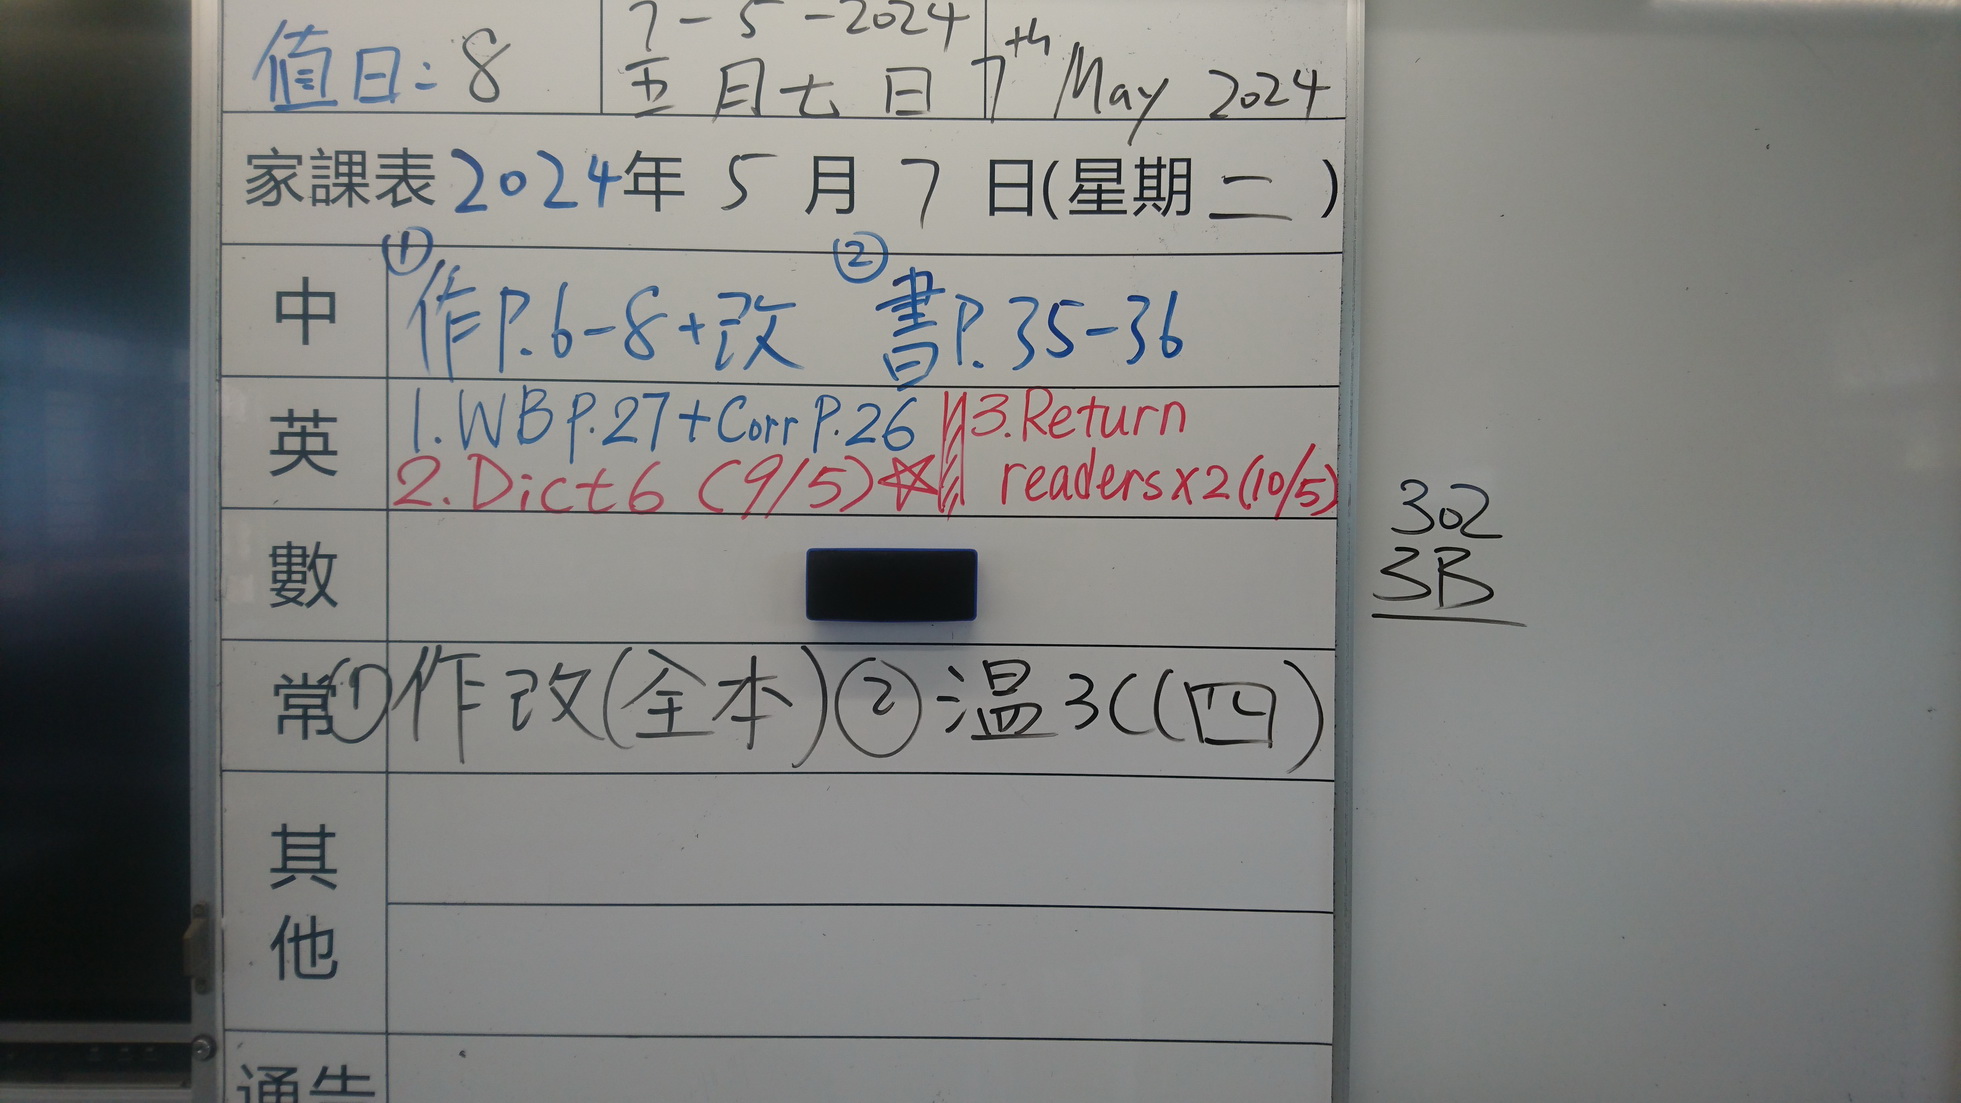 值日：8
7-5-2024
五月七日
7th May 2024
家課表2024年5月7日(星期二)
中
①作P.6-8+改 ②書P.35-36
英
1.WB P.27+Corr P.26
2.Dict 6 (9/5)☆
3.Return
readers x2(10/5)
數
常
①作改(全本)②溫3C(四)
其他
通告
302
3B